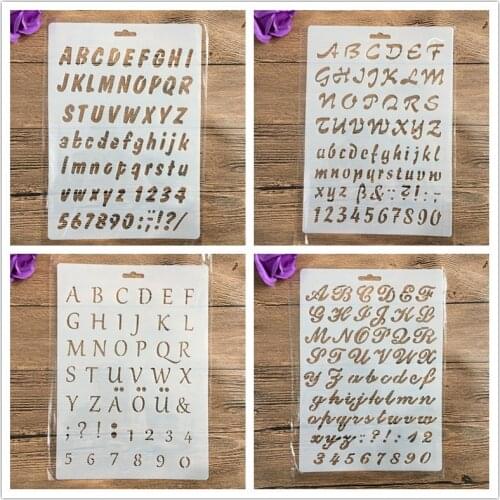 ABCDEFGHI
JKLMNOPQR
STUVWXYZ
abcdefghijk
lmnopqrstu
vwxyz 1234
567890:;!?/
ABCDEFG
HIJKLM
NOPQRS
TUVWXYZ
abcdefghijkl
mnopqrstuvw
xyz ß&:?!:-
1234567890
A B C D E F
G H I J K L
M N O P Q R
S T U V W X
Y Z Ä Ö Ü &
; ? ! : 1 2 3 4
5 6 7 8 9 0
ABCDEF
GHIJKL
MNOPQR
STUVWX
YZabcdef
ghijklmn
opqrstuvw
xyz:?!:12
34567890